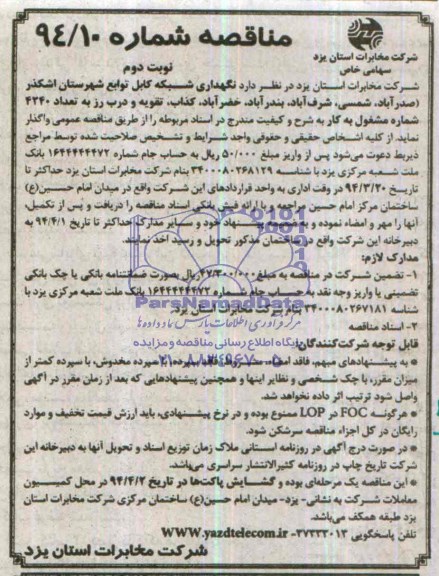 مناقصه شماره ۹۴/۱۰
شرکت مخابرات استان یزد
سهامی خاص
نوبت دوم
شرکت مخابرات استان یزد در نظر دارد نگهداری شبکه کابل توابع شهرستان اشکذر
(صدرآباد، شمسی، شرف‌آباد، بندرآباد، خضرآباد، کذاب، تقویه و درب رز به تعداد ۴۲۴۰
شماره مشغول به کار به شرح و کیفیت مندرج در اسناد مربوطه را از طریق مناقصه عمومی واگذار
نماید. از کلیه اشخاص حقیقی و حقوقی واجد شرایط و تشخیص صلاحیت شده توسط مراجع
ذیربط دعوت می‌شود پس از واریز مبلغ ۵۰/۰۰۰ ریال به حساب جام شماره ۱۶۴۴۴۴۴۴۷۲ بانک
ملت شعبه مرکزی یزد با شناسه ۳۴۰۰۰۸۰۲۶۸۱۲۹ بنام شرکت مخابرات استان یزد حداکثر تا
تاریخ ۹۴/۳/۲۰ در وقت اداری به واحد قراردادهای این شرکت واقع در میدان امام حسین(ع)
ساختمان مرکز امام حسین مراجعه و با ارائه فیش بانکی اسناد مناقصه را دریافت و پس از تکمیل،
آنها را مهر و امضاء نموده و به ضمیمه پیشنهاد خود و سایر مدارک حداکثر تا تاریخ ۹۴/۴/۱ به
دبیرخانه این شرکت واقع در ساختمان مذکور تحویل و رسید اخذ نمایند.
مدارک لازم:
۱- تضمین شرکت در مناقصه به مبلغ ۴۷/۳۰۰/۰۰۰ ریال بصورت ضمانتنامه بانکی یا چک بانکی
تضمینی یا واریز وجه نقد به حساب جام شماره ۱۶۴۴۴۴۴۴۷۲ بانک ملت شعبه مرکزی یزد با
شناسه ۳۴۰۰۰۸۰۲۶۷۱۸۱ بنام شرکت مخابرات استان یزد.
ParsNamadData
۲- اسناد مناقصه
مرکز فرآوری اطلاعات پارس نماد داده‌ها
پایگاه اطلاع رسانی مناقصه و مزایده
قابل توجه شرکت‌کنندگان:
۰۲۱-۸۸۳۴۹۶۷۰-۵
* به پیشنهادهای مبهم، فاقد امضاء، مشروط، فاقد سپرده یا سپرده مخدوش، با سپرده کمتر از
میزان مقرر، با چک شخصی و نظایر اینها و همچنین پیشنهادهایی که بعد از زمان مقرر در آگهی
واصل شود ترتیب اثر داده نخواهد شد.
* هرگونه FOC در LOP ممنوع بوده و در نرخ پیشنهادی، باید ارزش قیمت تخفیف و موارد
رایگان در کل اجزاء مناقصه سرشکن شود.
* در صورت درج آگهی در روزنامه استانی ملاک زمان توزیع اسناد و تحویل آنها به دبیرخانه این
شرکت تاریخ چاپ در روزنامه کثیرالانتشار سراسری می‌باشد.
* این مناقصه یک مرحله‌ای بوده و گشایش پاکت‌ها در تاریخ ۹۴/۴/۲ در محل کمیسیون
معاملات شرکت به نشانی- یزد- میدان امام حسین(ع) ساختمان مرکزی شرکت مخابرات استان
یزد طبقه همکف می‌باشد.
تلفن پاسخگویی ۳۷۳۳۳۰۱۳- WWW.yazdtelecom.ir
شرکت مخابرات استان یزد